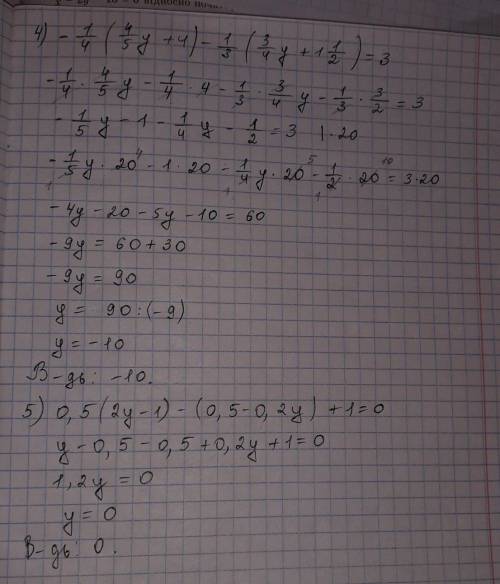 4) - 1/4 (4/5 y + 4) - 1/3 (3/4 y + 1 1/2) = 3
- 1/4 · 4/5 y - 1/4 · 4 - 1/3 · 3/4 y - 1/3 · 3/2 = 3
- 1/5 y - 1 - 1/4 y - 1/2 = 3 | · 20
- 1/5 y · 20 - 1 · 20 - 1/4 y · 20 - 1/2 · 20 = 3 · 20
- 4y - 20 - 5y - 10 = 60
- 9y = 60 + 30
- 9y = 90
y = 90 : (-9)
y = - 10
В-дь: -10.
5) 0,5 (2y - 1) - (0,5 - 0,2y) + 1 = 0
y - 0,5 - 0,5 + 0,2y + 1 = 0
1,2y = 0
y = 0
В-дь: 0.